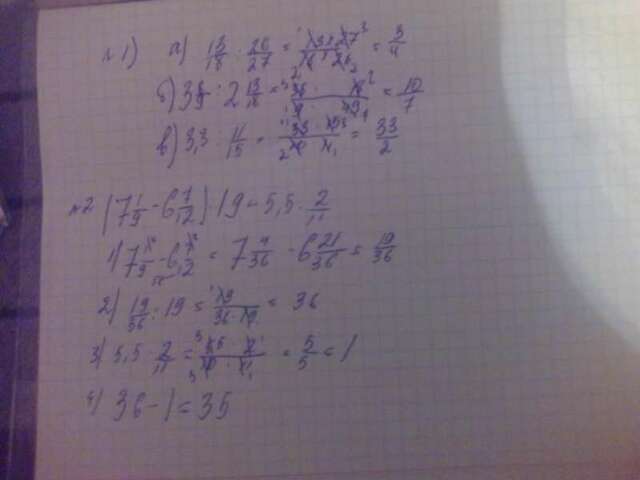 №1) а) 13/18 : 26/27 = 13 · 27 / 18 · 26 = 3/4
б) 3 8/9 : 2 13/18 = = 10/7
в) 3,3 : 11/15 = 33 · 15 / 10 · 11 = 33/2
№2 (7 1/9 - 6 7/12) : 19 - 5,5 · 2/11
1) 7 1/9 - 6 7/12 = 7 4/36 - 6 21/36 = 19/36
2) 19/36 : 19 = 19 / 36 · 19 = 36
3) 5,5 · 2/11 = 55 · 2 / 10 · 11 = 5/5 = 1
4) 36 - 1 = 35